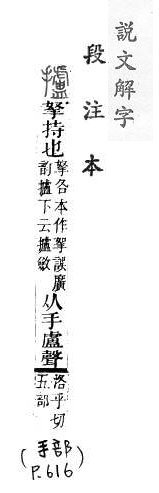 說文解字
段注本
攎
拏持也
拏各本作挐誤廣
韵攎下云攎斂
从手盧聲
洛乎切
五部
(手部
P.616)